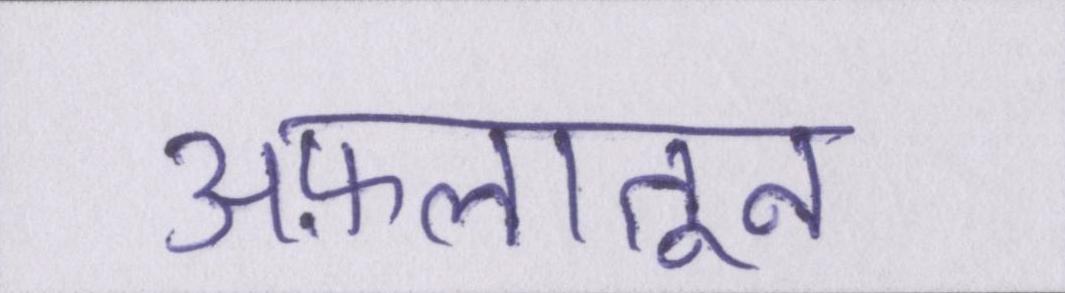 अफ़लातून